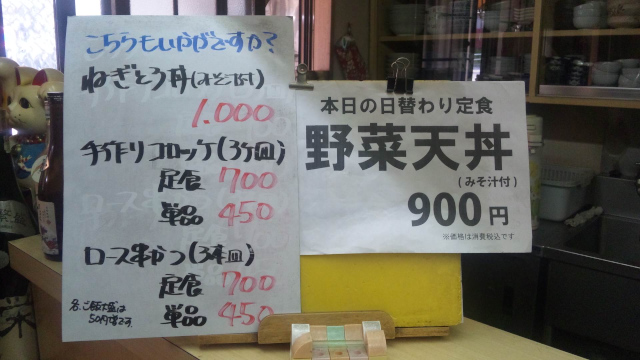 こちらもいかがですか?
ねぎとろ丼(みそ汁付)
1.000
手作りコロッケ(3ケ皿)
定食 700
単品 450
ロース串かつ(3本皿)
定食 700
単品 450
各、ご飯大盛は
50円増です。
本日の日替わり定食
野菜天丼
(みそ汁付)
900円
※価格は消費税込です